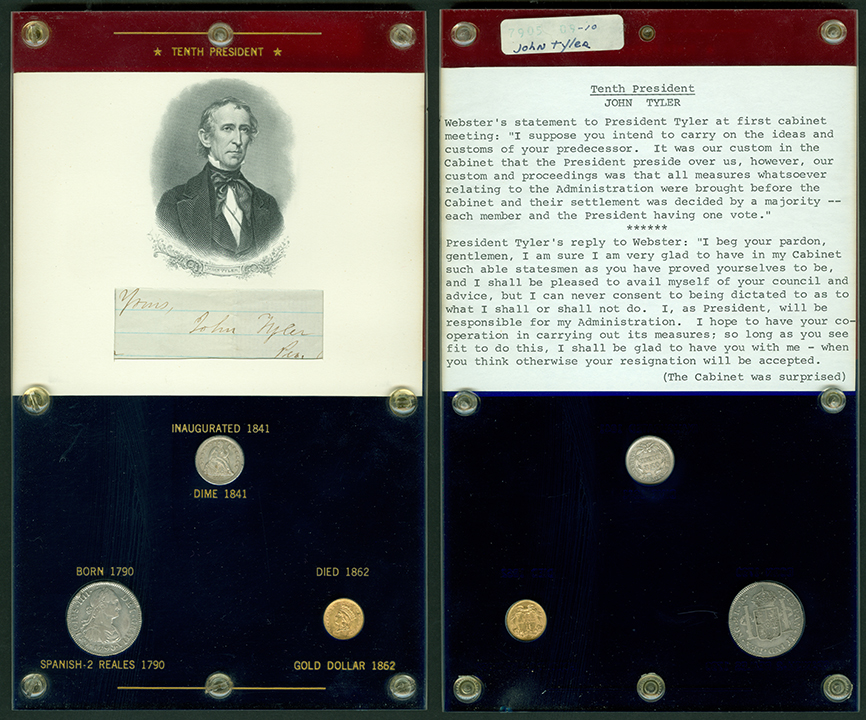 ★ TENTH PRESIDENT ★
JOHN TYLER
Yours,
John Tyler
INAUGURATED 1841
DIME 1841
BORN 1790
SPANISH-2 REALES 1790
DIED 1862
GOLD DOLLAR 1862
-10
John Tyler
Tenth President
JOHN TYLER
Webster's statement to President Tyler at first cabinet
meeting: "I suppose you intend to carry on the ideas and
customs of your predecessor. It was our custom in the
Cabinet that the President preside over us, however, our
custom and proceedings was that all measures whatsoever
relating to the Administration were brought before the
Cabinet and their settlement was decided by a majority --
each member and the President having one vote."
******
President Tyler's reply to Webster: "I beg your pardon,
gentlemen, I am sure I am very glad to have in my Cabinet
such able statesmen as you have proved yourselves to be,
and I shall be pleased to avail myself of your council and
advice, but I can never consent to being dictated to as to
what I shall or shall not do. I, as President, will be
responsible for my Administration. I hope to have your co-
operation in carrying out its measures; so long as you see
fit to do this, I shall be glad to have you with me - when
you think otherwise your resignation will be accepted.
(The Cabinet was surprised)